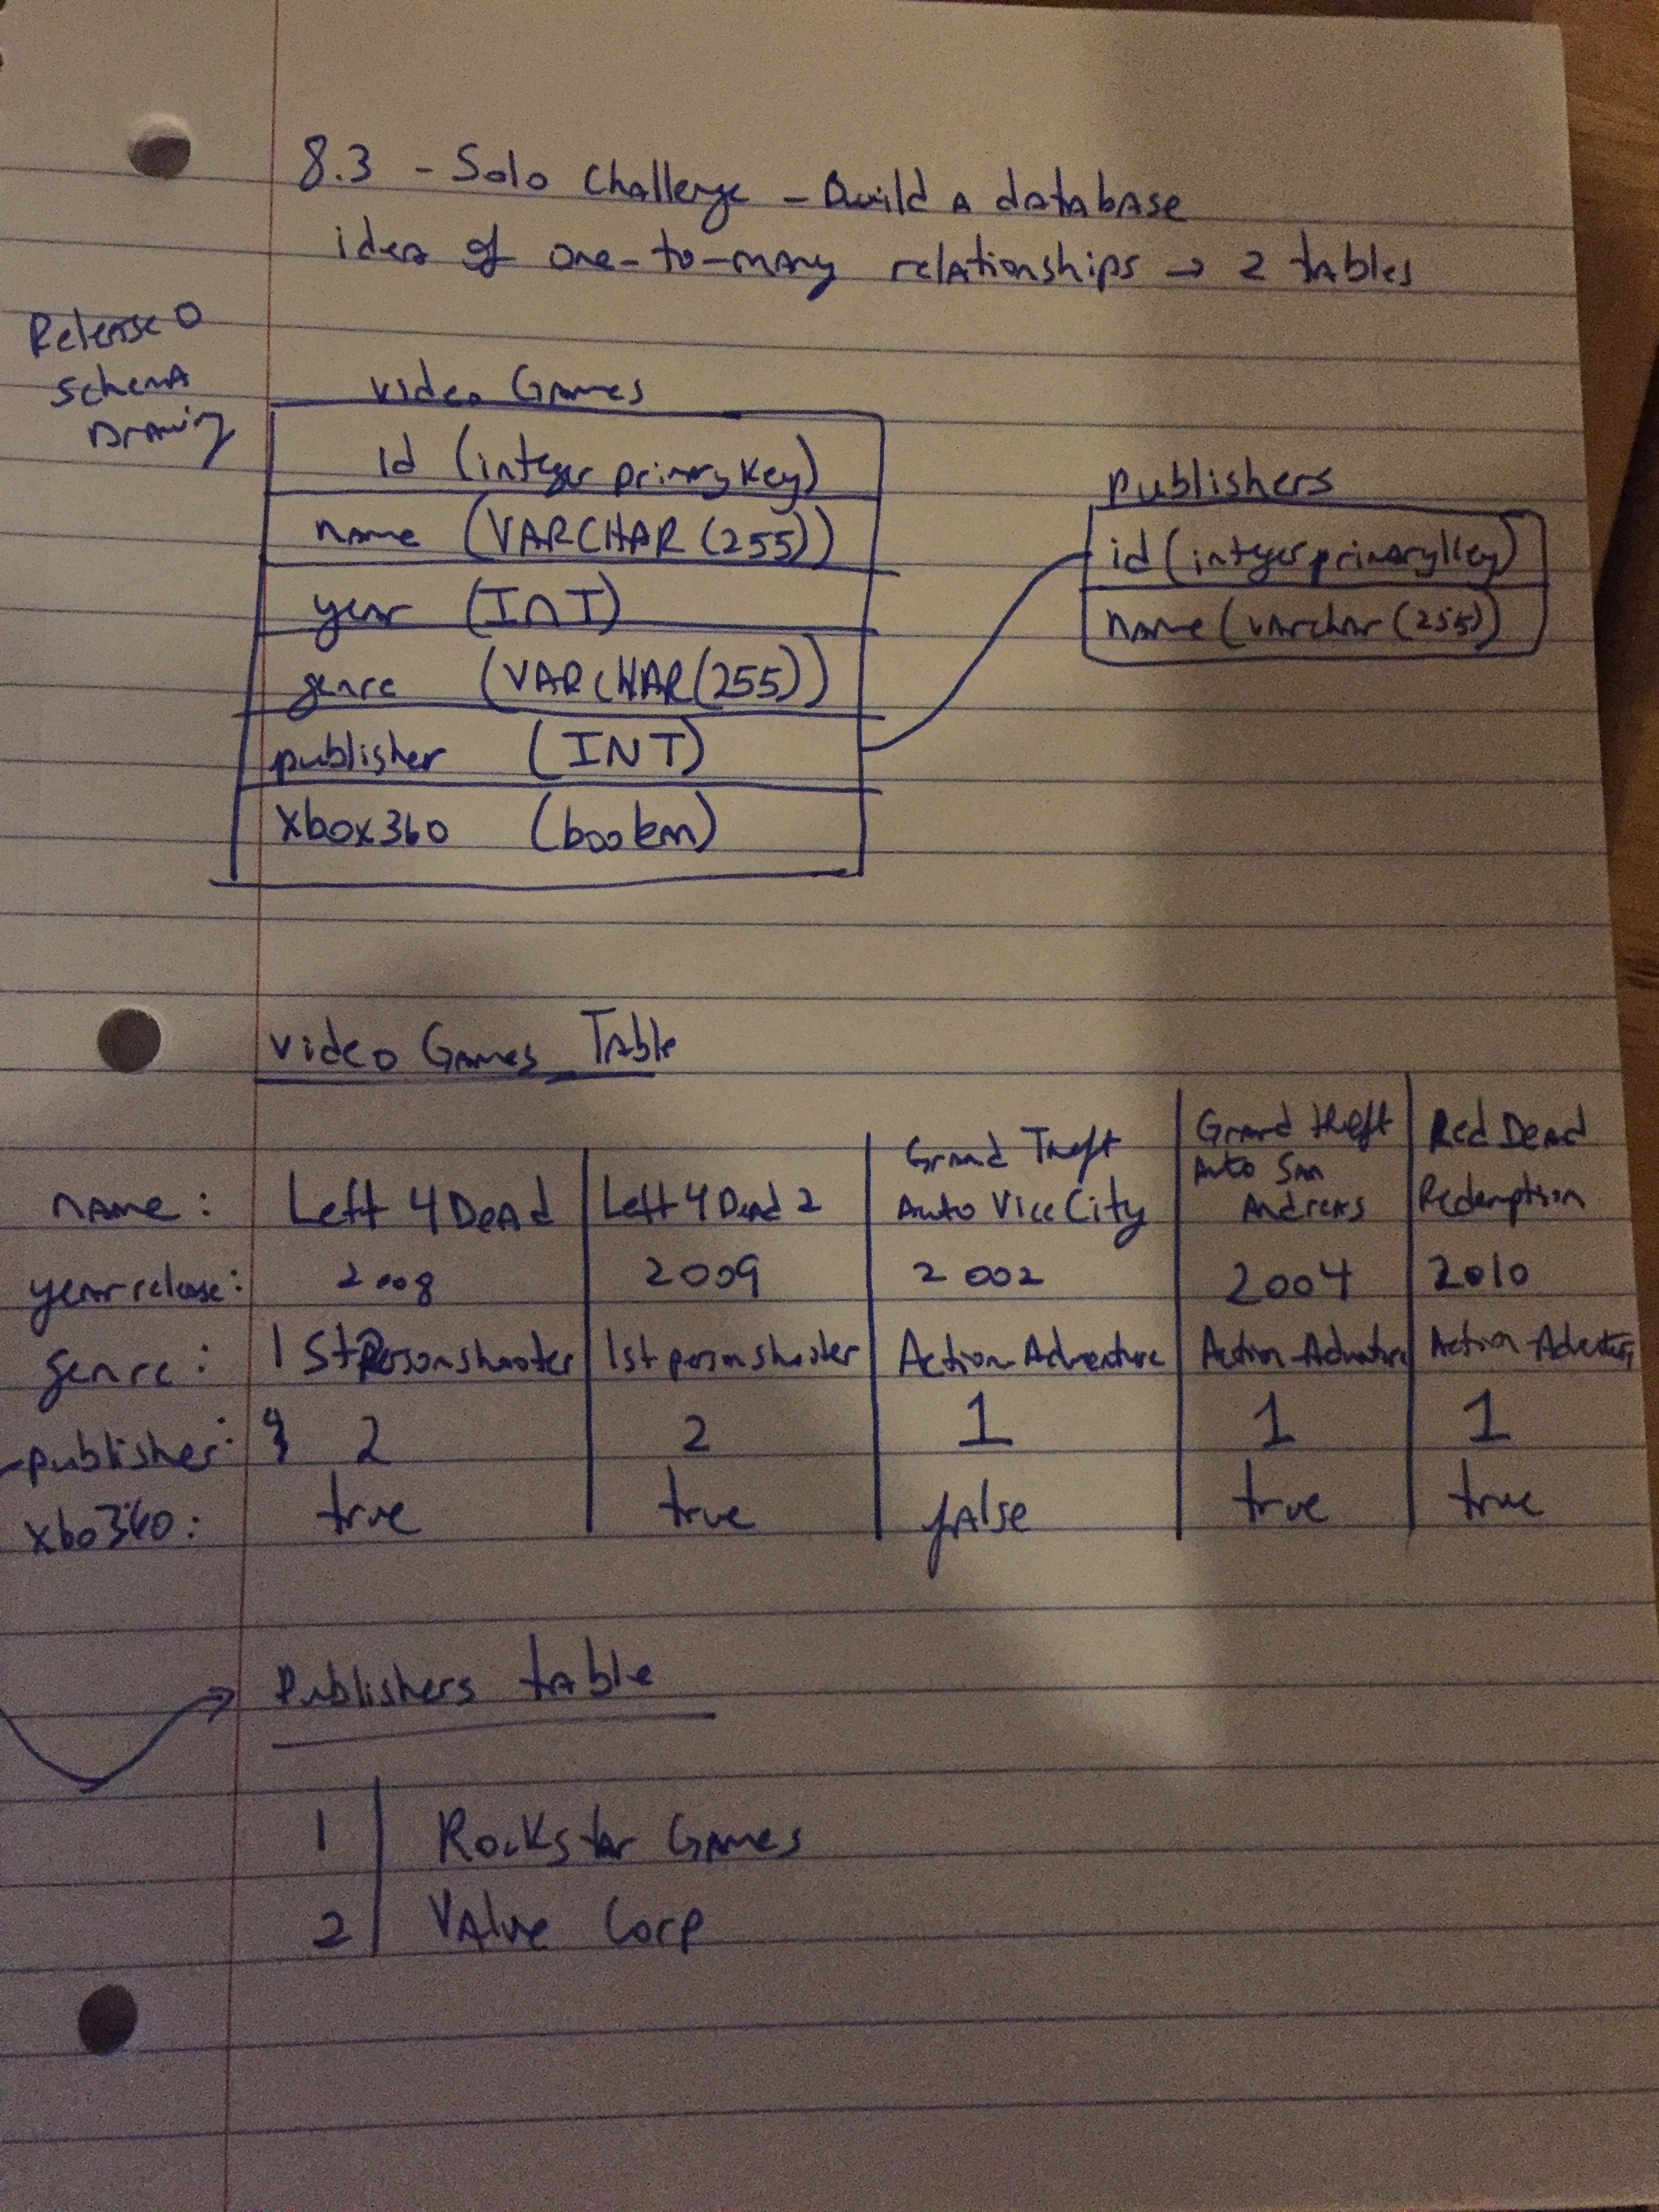 8.3 - Solo Challenge - Build a database
idea of one-to-many relationships → 2 tables
Release 0
Schema
Drawing
video Games
id (integer primary key)
name (VARCHAR (255))
year (INT)
genre (VARCHAR(255))
publisher (INT)
Xbox360 (boolean)
publishers
id (integer primary key)
name (varchar (255))
video Games Table
name: Left 4 Dead Left 4 Dead 2 Grand Theft Auto Vice City Grand theft Auto San Andreas Red Dead Redemption
year release: 2008 2009 2002 2004 2010
genre: 1st Person shooter 1st person shooter Action-Adventure Action-Adventure Action-Adventure
publisher: 2 2 1 1 1
xbo360: true true false true true
Publishers table
1 Rockstar Games
2 Valve Corp